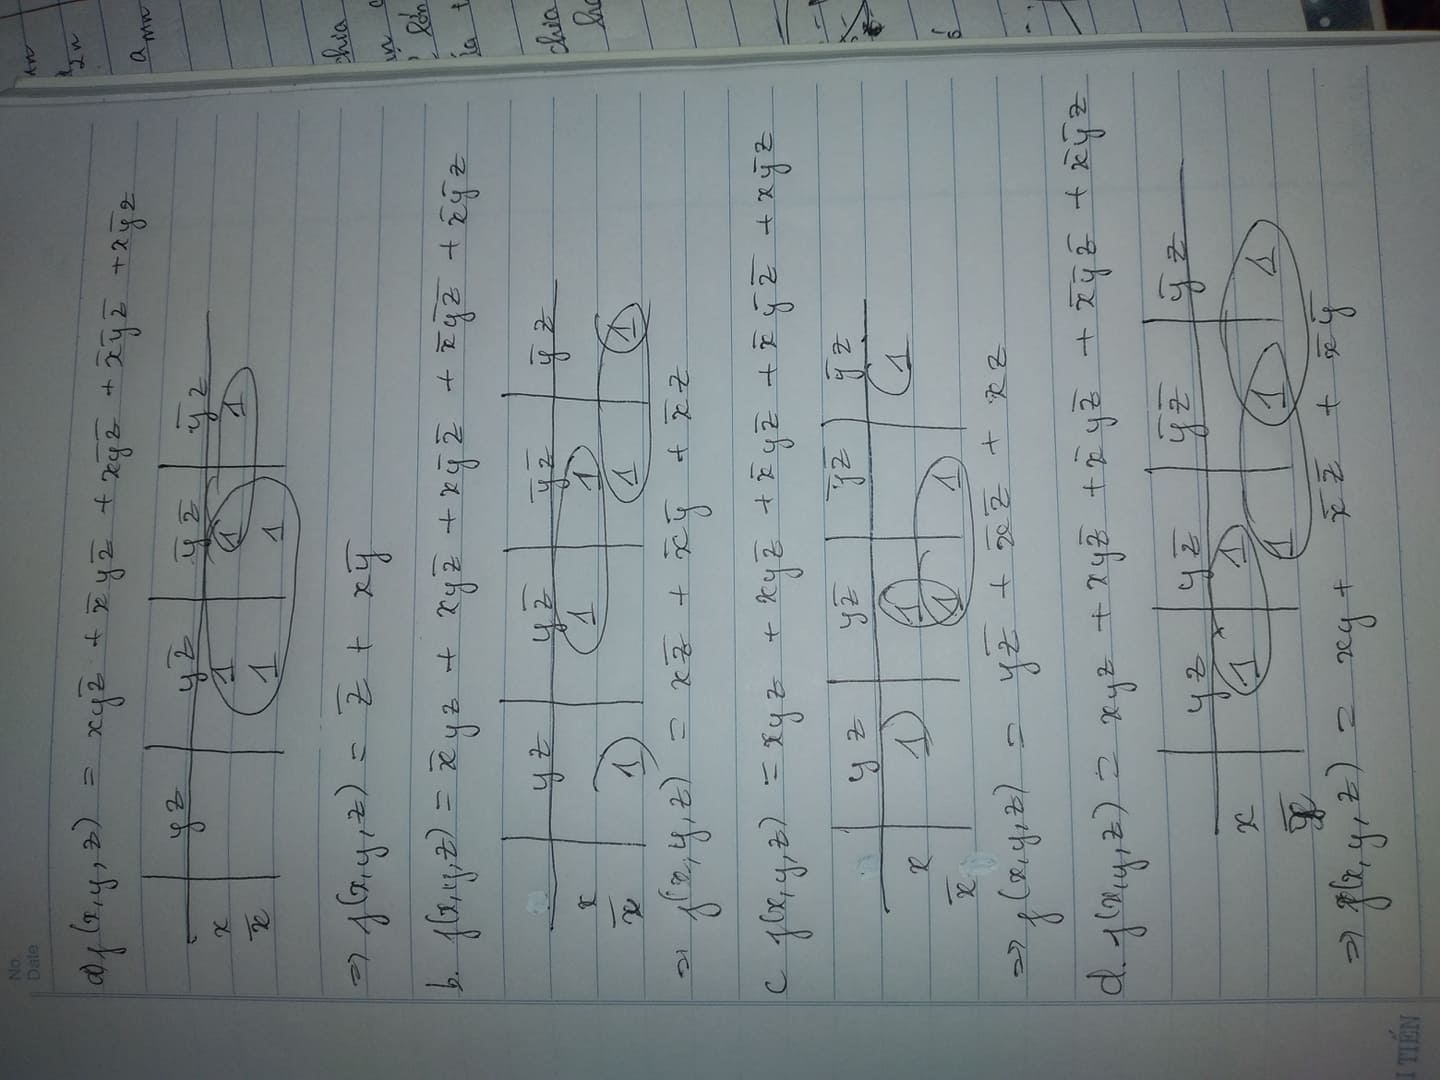 No.
Date
a) f(x,y,z) = xyz̅ + x̅yz̅ + xy̅z̅ + x̅y̅z̅ + xy̅z
yz yz̅ y̅z̅ y̅z
x 1 1 1
x̅ 1 1
=> f(x,y,z) = z̅ + xy̅
b. f(x,y,z) = x̅yz + xyz̅ + xy̅z̅ + x̅y̅z̅ + x̅y̅z
yz yz̅ y̅z̅ y̅z
x 1 1
x̅ 1 1 1
=> f(x,y,z) = xz̅ + x̅y̅ + x̅z
c f(x,y,z) = xyz + xyz̅ + x̅yz̅ + x̅y̅z̅ + xy̅z
yz yz̅ y̅z̅ y̅z
x 1 1 1
x̅ 1 1
=> f(x,y,z) = yz̅ + x̅z̅ + xz
d. f(x,y,z) = xyz + xyz̅ + x̅yz̅ + x̅y̅z̅ + x̅y̅z
yz yz̅ y̅z̅ y̅z
x 1 1
x̅ 1 1 1
=> f(x,y,z) = xy + x̅z̅ + x̅y̅
I TIẾN
chia
chia
a mn
2n